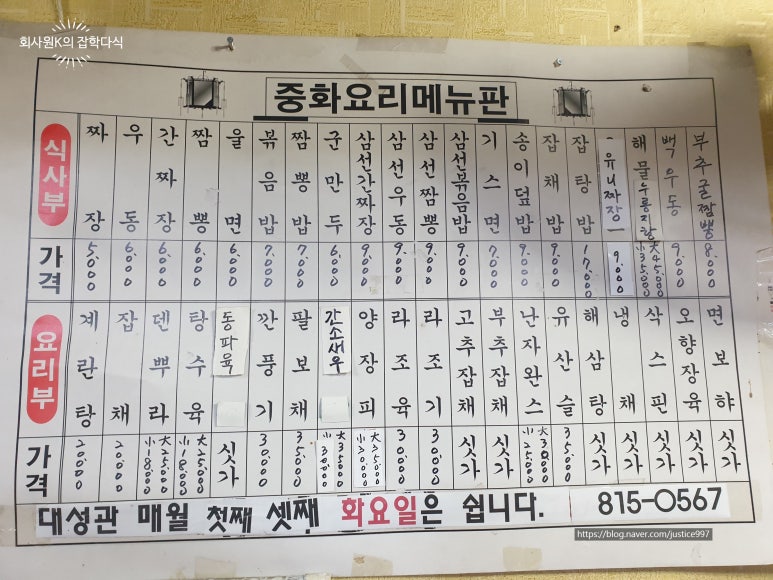 회사원K의 잡학다식
중화요리메뉴판
식사부
짜장
우동
간짜장
짬뽕
울면
볶음밥
짬뽕밥
군만두
삼선간짜장
삼선우동
삼선짬뽕
삼선볶음밥
기스면
송이덮밥
잡채밥
잡탕밥
유니짜장
해물누룽지탕
백우동
부추굴짬뽕
가격
5.000
6.000
6.000
6.000
6.000
7.000
7.000
6.000
9.000
9.000
9.000
9.000
7.000
9.000
9.000
17.000
9.000
大45.000
小35.000
9.000
8.000
요리부
계란탕
잡채
덴뿌라
탕수육
동파육
깐풍기
팔보채
간소새우
양장피
라조육
라조기
고추잡채
부추잡채
난자완스
유산슬
해삼탕
냉채
삭스핀
오향장육
면보하
가격
20.000
20.000
大25.000
小18.000
大25.000
小18.000
싯가
30.000
35.000
大35000
小30000
大35000
小30000
30.000
30.000
싯가
싯가
大30000
小25000
35.000
싯가
싯가
싯가
싯가
싯가
대성관 매월 첫째 셋째 화요일은 쉽니다. 815-0567
https://blog.naver.com/justice997